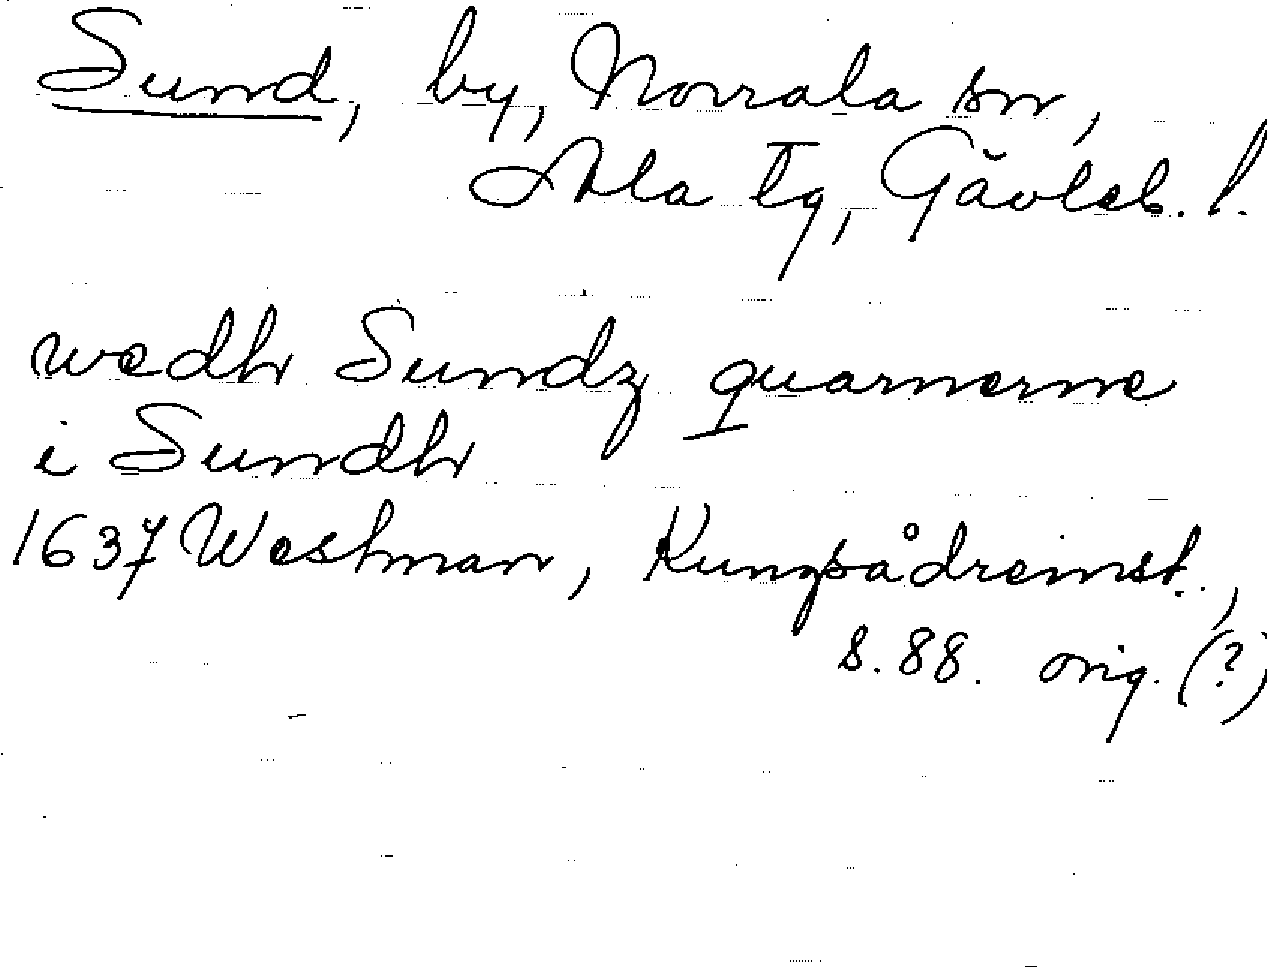 Sund, by, Norrala sn,
Ala tg, Gävleb. l.
wedh Sundz quarnerne
i Sundh
1637 Westman, Kungsådreinst.,
s. 88. orig. (?)